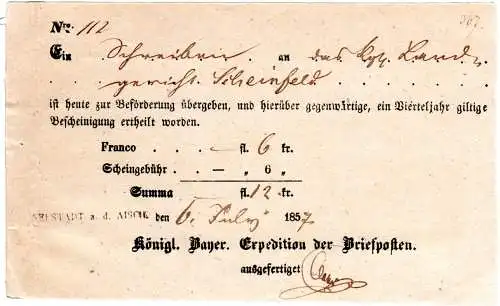 Nro. 112 367.
Ein Schreiben an das kgl. Land-
gericht Scheinfeld
ist heute zur Beförderung übergeben, und hierüber gegenwärtige, ein Vierteljahr giltige
Bescheinigung ertheilt worden.
Franco . . — fl. 6 kr.
Scheingebühr . . — „ 6 „
Summa fl. 12 kr.
NEUSTADT a. d. AISCH. den 6. July 1857
Königl. Bayer. Expedition der Briefposten.
ausgefertiget